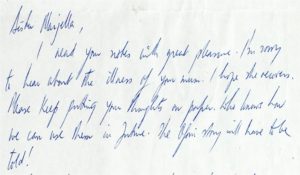 Sister Marjella,
I read your notes with great pleasure. I'm sorry
to hear about the illness of your mum. I hope she recovers.
Please keep putting your thoughts on paper. Who knows how
we can use them in future. The story will have to be
told!